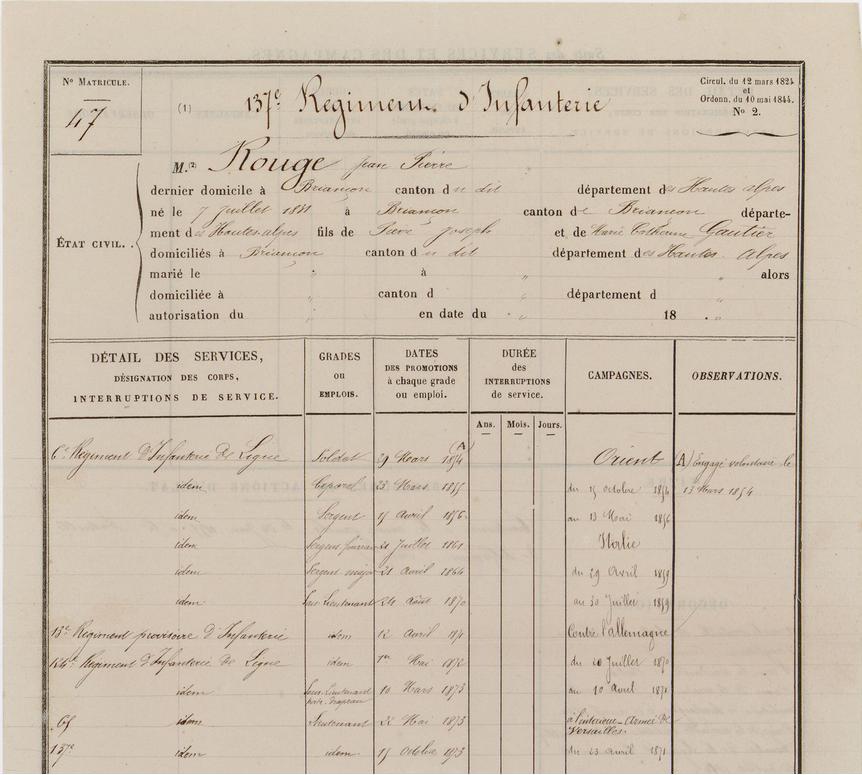 N° MATRICULE.
47
(1) 137e Regiment d'Infanterie
Circul. du 12 mars 1824
et
Ordonn. du 10 mai 1844.
N° 2.
ÉTAT CIVIL.
M.(2) Rouge jean Pierre
dernier domicile à Briançon canton du dit département des Hautes alpes
né le 7 juillet 1831 à Briançon canton de Briançon départe-
ment des Hautes alpes fils de joseph et de Marie Catherine Gautier
domiciliés à Briançon canton du dit département des Hautes Alpes
marié le " à " alors
domiciliée à " canton d " département d "
autorisation du " en date du " 18 "
DÉTAIL DES SERVICES,
DÉSIGNATION DES CORPS,
INTERRUPTIONS DE SERVICE.
GRADES
ou
EMPLOIS.
DATES
DES PROMOTIONS
à chaque grade
ou emploi.
DURÉE
des
INTERRUPTIONS
de service.
Ans. Mois. Jours.
CAMPAGNES.
OBSERVATIONS.
6e Regiment d'Infanterie de Ligne Soldat 29 Mars 1854 (A) Orient (A) Engagé volontaire le
idem Caporal 23 Mars 1855 du 15 octobre 13 Mars 1854
idem Sergent 15 Avril 1856 au 13 Mai 1856
idem Sergent fourrier 21 Juillet 1861 Italie
idem Sergent major 21 Avril 1864 du 29 Avril 1859
idem Sous Lieutenant 24 Août 1870 au 30 Juillet 1859
Regiment provisoire d'Infanterie idem 12 Avril Contre l'allemagne
Regiment d'Infanterie de Ligne idem 1er Mai du Juillet 1870
idem Sous Lieutenant porte-drapeau 10 Mars 1873 au 10 Avril 1871
idem Lieutenant 22 Mai 1873 à l'intérieur - Armée de Versailles
137e idem idem 15 Octobre 1873 du 23 avril 1871